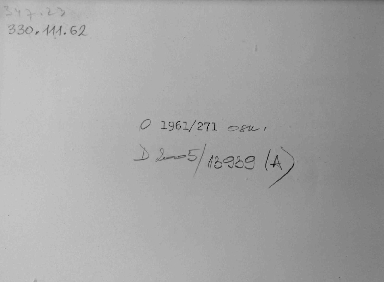 347.23
330.111.62
O 1961/271 osn.
D 2005/13939 (A)